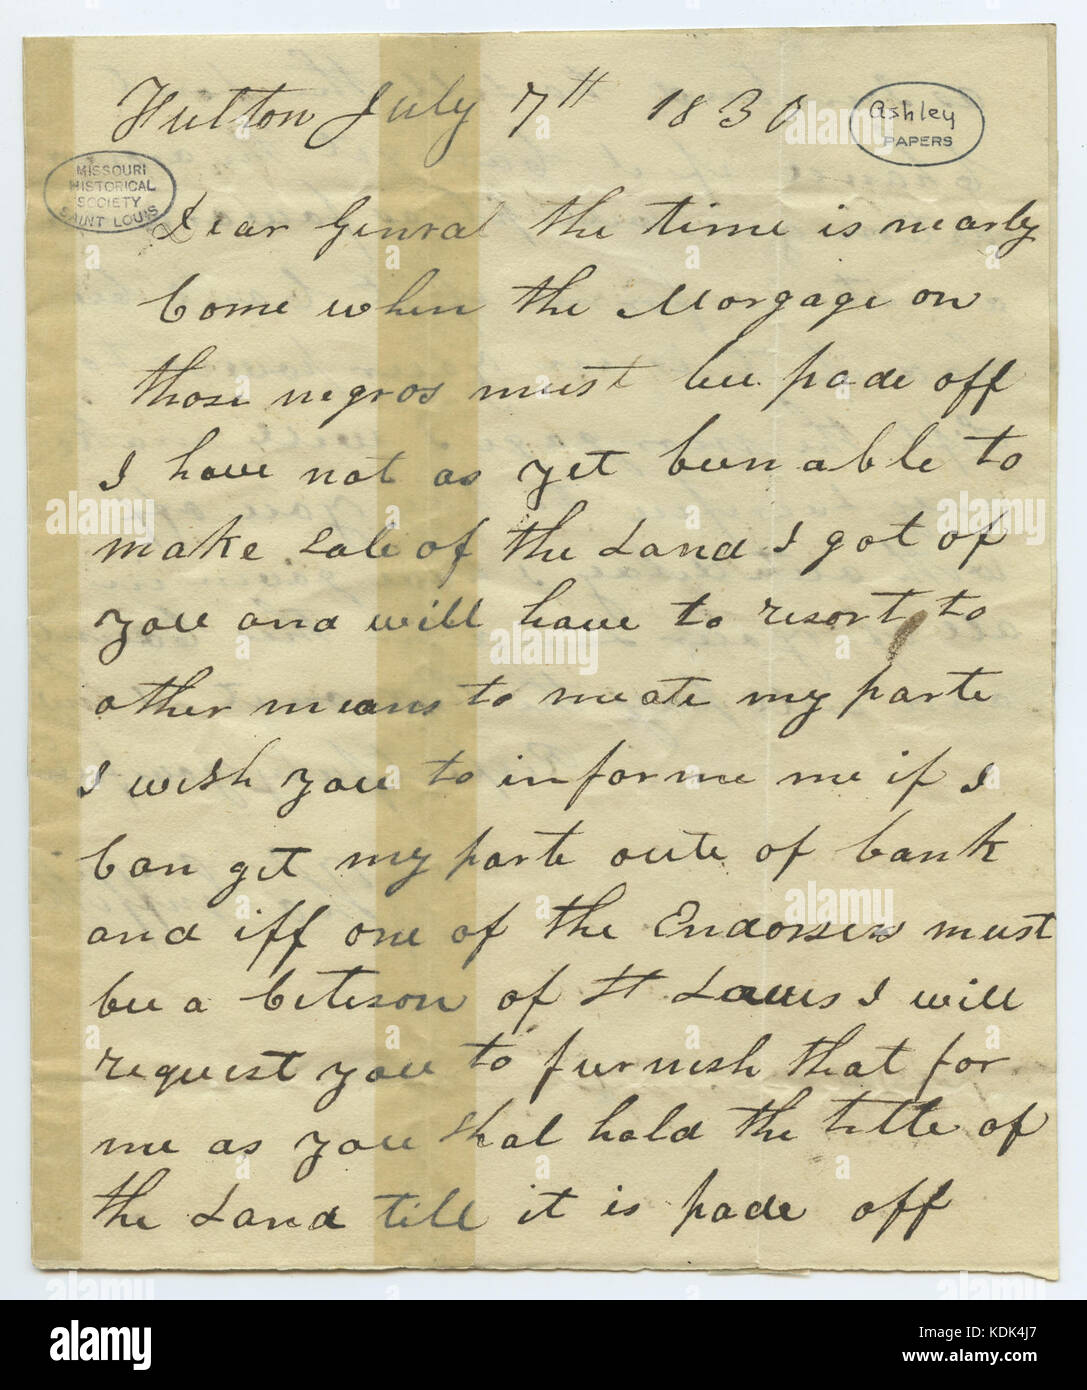 Fulton July 7th 1830
Ashley
PAPERS
MISSOURI
HISTORICAL
SOCIETY
SAINT LOUIS
Dear Genral the time is nearly
Come when the Morgage on
those negros must bee pade off
I have not as yet been able to
make Sale of the Land I got of
you and will have to resort to
other means to meate my parte
I wish you to informe me if I
Can get my parte oute of bank
and iff one of the Endorsers must
be a Citeson of St Lauis I will
request you to furnish that for
me as you shal hold the title of
the Land till it is pade off
alamy
Image ID: KDK4J7
www.alamy.com